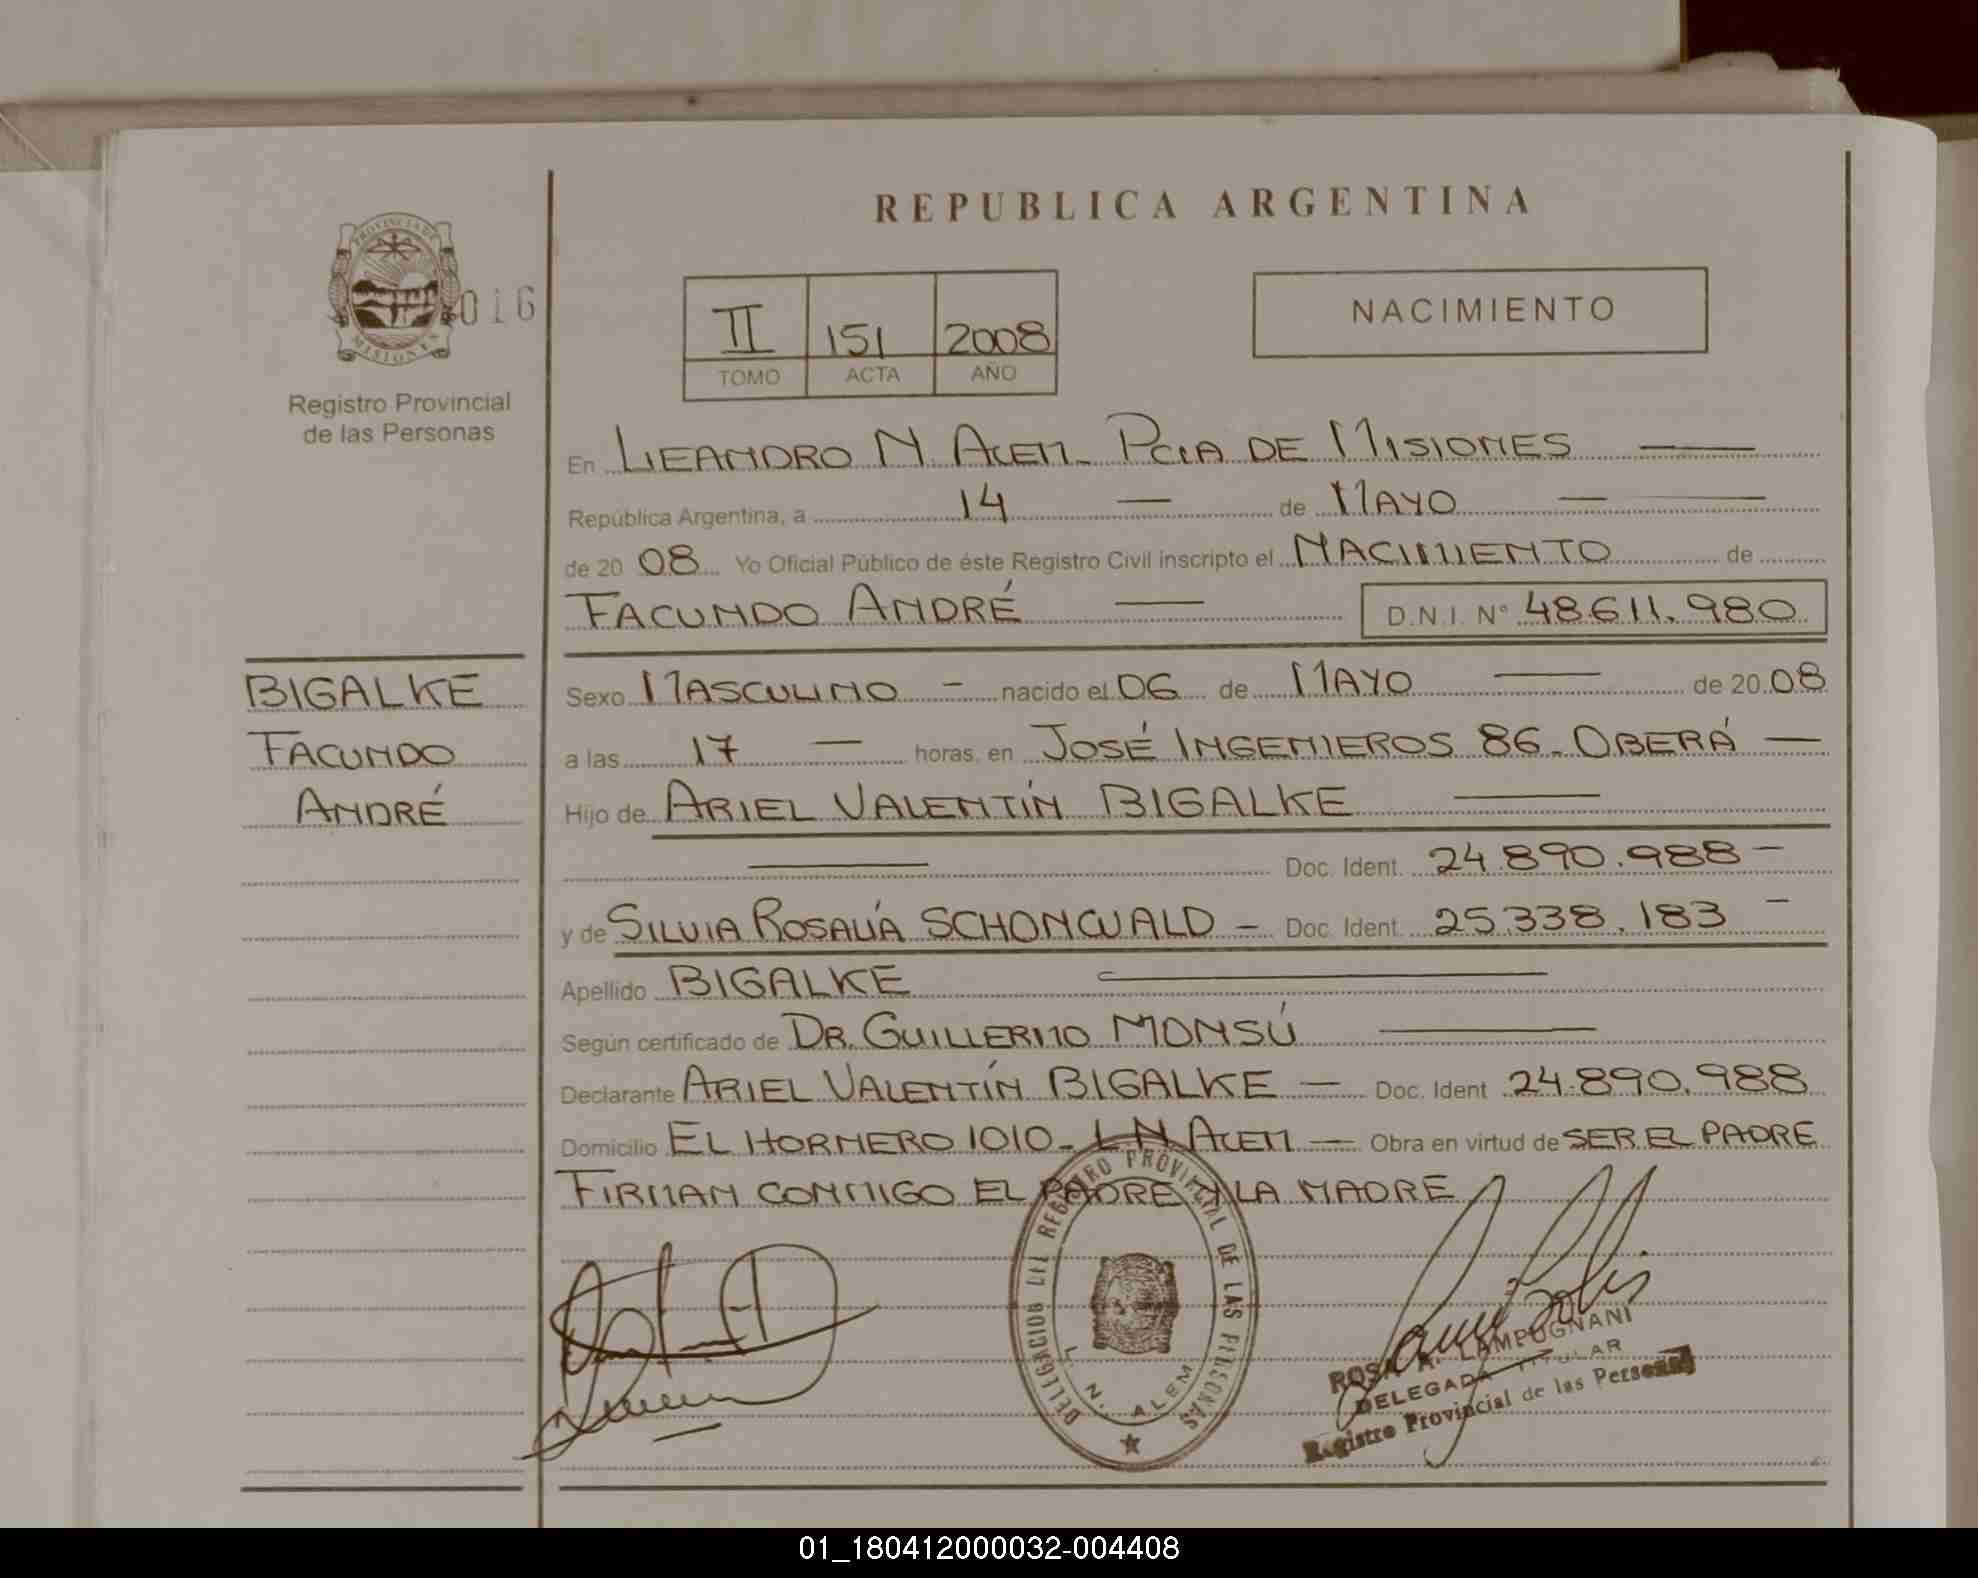 REPUBLICA ARGENTINA
PROVINCIA DE
MISIONES
016
Registro Provincial
de las Personas
II 151 2008
TOMO ACTA AÑO
NACIMIENTO
En LEANDRO N. ALEM - PCIA DE MISIONES
República Argentina, a 14 de MAYO
de 2008 Yo Oficial Público de éste Registro Civil inscripto el NACIMIENTO de
FACUNDO ANDRÉ D.N.I. Nº 48.611.980
BIGALKE
FACUNDO
ANDRÉ
Sexo MASCULINO - nacido el 06 de MAYO de 2008
a las 17 horas, en JOSÉ INGENIEROS 86 - OBERÁ
Hijo de ARIEL VALENTÍN BIGALKE
Doc. Ident. 24.890.988 -
y de SILVIA ROSALÍA SCHONWALD - Doc. Ident. 25.338.183 -
Apellido BIGALKE
Según certificado de DR. GUILLERMO MONSÚ
Declarante ARIEL VALENTÍN BIGALKE - Doc. Ident 24.890.988
Domicilio EL HORNERO 1010 - L N ALEM - Obra en virtud de SER EL PADRE
FIRMAN CONMIGO EL PADRE Y LA MADRE
DELEGACION DEL REGISTRO PROVINCIAL DE LAS PERSONAS
L. N. ALEM
ROSA A. LAMPUGNANI
DELEGADA TITULAR
Registro Provincial de las Personas
01_180412000032-004408